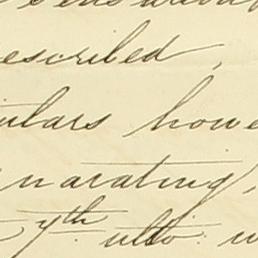 escribed,
ulars howe
narating,
7th ulto.